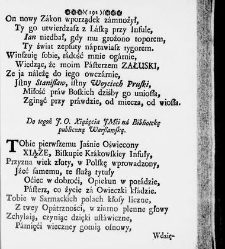 (192)
On nowy Zákon wporządek zámnożył,
Ty go utwierdzasz z Láską przy Insule,
Ian niedbał, gdy mu grożono toporem,
Ty świat zepsuty nápráwiasz rygorem.
Winszuię sobie, rádość mnie ogárnie,
Wiedząc, że moim Pásterzem ZAŁUSKI,
Ze ja náleżę do iego owczárnie,
Istny Stanisław, istny Woyciech Pruski,
Miłość práw Boskich dzisby go uniosła,
Zginąć przy práwdzie, od miecza, od wiosła.
Do tegoż J. O. Xiążęcia JMci ná Bibliotekę
publiczną Warszawską.
Tobie pierwszemu Jaśnie Oświecony
XIĄŻE, Biskupie Krákowskiey Insuły,
Przyzna wiek złoty, w Polskę wprowádzony,
Jżeć samemu, te służą tytuły
Oćiec w dobroći, Opiekun w potrzebie,
Pásterz, co życie zá Owieczki kłádzie.
Tobie w Sarmackich polach kłosy liczne,
Z twey Opátrznośći, w ziarno plenne głowy
Zchyláią, czyniąc dzięki ustáwiczne,
Pamięći wieczney gotuią osnowy,
Wdzię-